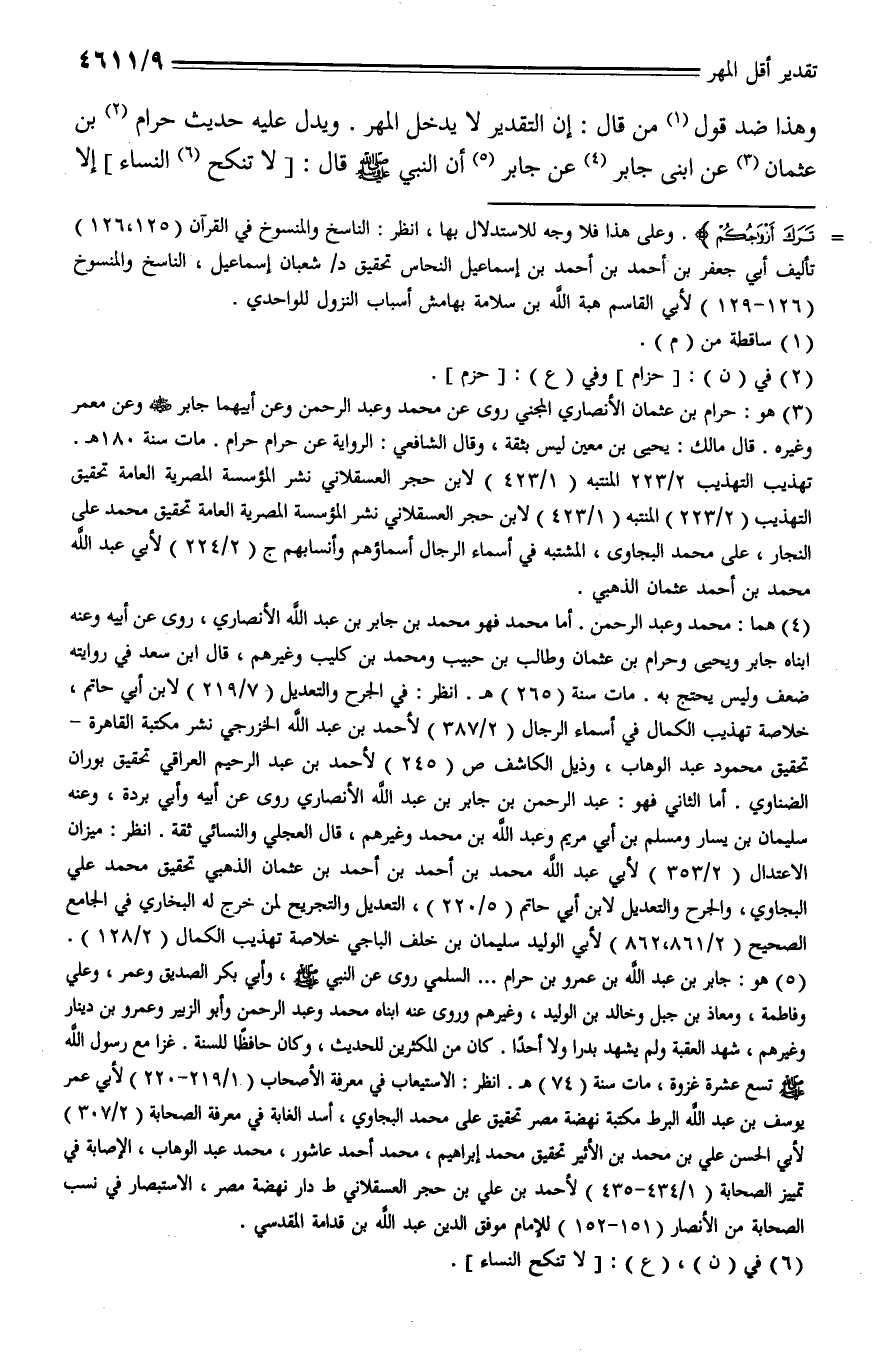 تقدير أقل المهر ٤٦١١/٩
وهذا ضد قول (١) من قال : إن التقدير لا يدخل المهر . ويدل عليه حديث حرام (٢) بن
عثمان (٣) عن ابنى جابر (٤) عن جابر (٥) أن النبي ﷺ قال : [ لا تنكح (٦) النساء ] إلا
= تَرَكَ أَزْوَاجُكُمْ ﴾ . وعلى هذا فلا وجه للاستدلال بها ، انظر : الناسخ والمنسوخ في القرآن (١٢٦،١٢٥ )
تأليف أبي جعفر بن أحمد بن أحمد بن إسماعيل النحاس تحقيق د/ شعبان إسماعيل ، الناسخ والمنسوخ
(١٢٦-١٢٩ ) لأبي القاسم هبة اللَّه بن سلامة بهامش أسباب النزول للواحدي .
(١) ساقطة من ( م ) .
(٢) في ( ن ) : [ حزام ] وفي ( ع ) : [ حزم ] .
(٣) هو : حرام بن عثمان الأنصاري المجني روى عن محمد وعبد الرحمن وعن أبيهما جابر ﷺ وعن معمر
وغيره . قال مالك : يحيى بن معين ليس بثقة ، وقال الشافعي : الرواية عن حرام حرام . مات سنة ١٨٠هـ .
تهذيب التهذيب ٢٢٣/٢ المنتبه ( ٤٢٣/١ ) لابن حجر العسقلاني نشر المؤسسة المصرية العامة تحقيق
التهذيب ( ٢٢٣/٢ ) المنتبه ( ٤٢٣/١ ) لابن حجر العسقلاني نشر المؤسسة المصرية العامة تحقيق محمد على
النجار ، على محمد البجاوى ، المشتبه في أسماء الرجال أسماؤهم وأنسابهم ج ( ٢٢٤/٢ ) لأبي عبد اللَّه
محمد بن أحمد عثمان الذهبي .
(٤) هما : محمد وعبد الرحمن . أما محمد فهو محمد بن جابر بن عبد اللَّه الأنصاري ، روى عن أبيه وعنه
ابناه جابر ويحيى وحرام بن عثمان وطالب بن حبيب ومحمد بن كليب وغيرهم ، قال ابن سعد في روايته
ضعف وليس يحتج به . مات سنة (٢٦٥ ) هـ . انظر : في الجرح والتعديل ( ٢١٩/٧ ) لابن أبي حاتم ،
خلاصة تهذيب الكمال في أسماء الرجال ( ٣٨٧/٢ ) لأحمد بن عبد اللَّه الخزرجي نشر مكتبة القاهرة -
تحقيق محمود عبد الوهاب ، وذيل الكاشف ص ( ٢٤٥ ) لأحمد بن عبد الرحيم العراقي تحقيق بوران
الضناوي . أما الثاني فهو : عبد الرحمن بن جابر بن عبد اللَّه الأنصاري روى عن أبيه وأبي بردة ، وعنه
سليمان بن يسار ومسلم بن أبي مريم وعبد اللَّه بن محمد وغيرهم ، قال العجلي والنسائي ثقة . انظر : ميزان
الاعتدال ( ٣٥٣/٢ ) لأبي عبد اللَّه محمد بن أحمد بن أحمد بن عثمان الذهبي تحقيق محمد علي
البجاوي ، والجرح والتعديل لابن أبي حاتم ( ٢٢٠/٥ ) ، التعديل والتجريح لمن خرج له البخاري في الجامع
الصحيح ( ٨٦٢،٨٦١/٢ ) لأبي الوليد سليمان بن خلف الباجي خلاصة تهذيب الكمال ( ١٢٨/٢ ) .
(٥) هو : جابر بن عبد اللَّه بن عمرو بن حرام ... السلمي روى عن النبي ﷺ ، وأبي بكر الصديق وعمر ، وعلي
وفاطمة ، ومعاذ بن جبل وخالد بن الوليد ، وغيرهم وروى عنه ابناه محمد وعبد الرحمن وأبو الزبير وعمرو بن دينار
وغيرهم ، شهد العقبة ولم يشهد بدرا ولا أحدًا . كان من المكثرين للحديث ، وكان حافظًا للسنة . غزا مع رسول اللَّه
ﷺ تسع عشرة غزوة ، مات سنة (٧٤) هـ . انظر : الاستيعاب في معرفة الأصحاب ( ٢١٩/١-٢٢٠ ) لأبي عمر
يوسف بن عبد اللَّه البرط مكتبة نهضة مصر تحقيق على محمد البجاوي ، أسد الغابة في معرفة الصحابة ( ٣٠٧/٢ )
لأبي الحسن علي بن محمد بن الأثير تحقيق محمد إبراهيم ، محمد أحمد عاشور ، محمد عبد الوهاب ، الإصابة في
تمييز الصحابة ( ٤٣٤/١-٤٣٥ ) لأحمد بن علي بن حجر العسقلاني ط دار نهضة مصر ، الاستبصار في نسب
الصحابة من الأنصار (١٥١-١٥٢ ) للإمام موفق الدين عبد اللَّه بن قدامة المقدسي .
(٦) في ( ن ) ، ( ع ) : [ لا تنكح النساء ] .